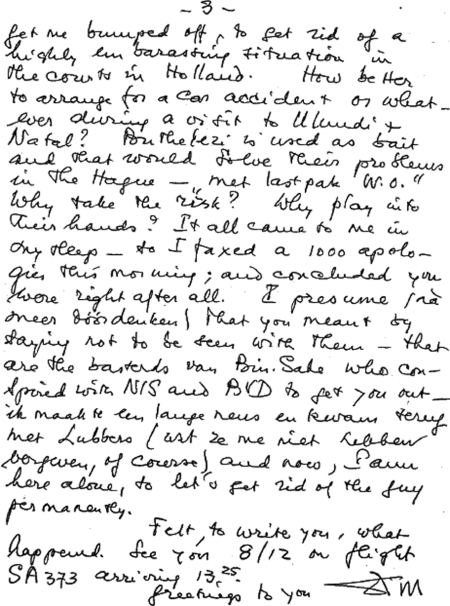 - 3 -
get me bumped off, to get rid of a
highly embarassing situation in
the courts in Holland. How better
to arrange for a car accident or what-
ever during a visit to Ulundi +
Natal? Buthelezi is used as bait
and that would solve their problems
in The Hague - "met lastpak W.O."
Why take the risk? Why play into
their hands? It all came to me in
my sleep - so I faxed a 1000 apolo-
gies this morning; and concluded you
were right after all. I presume (na
meer dóórdenken) that you meant by
saying not to be seen with them - that
are the basterds van Bin. Sake who con-
spired with NIS and BVD to get you out -
ik maakte een lange neus en kwam terug
met Lubbers (wat ze me niet hebben
vergeven, of course) and now, I am
here alone, so let's get rid of the guy
permanently.
Felt, to write you, what
happened. See you 8/12 on flight
SA 373 arriving 13.25.
Greetings to you